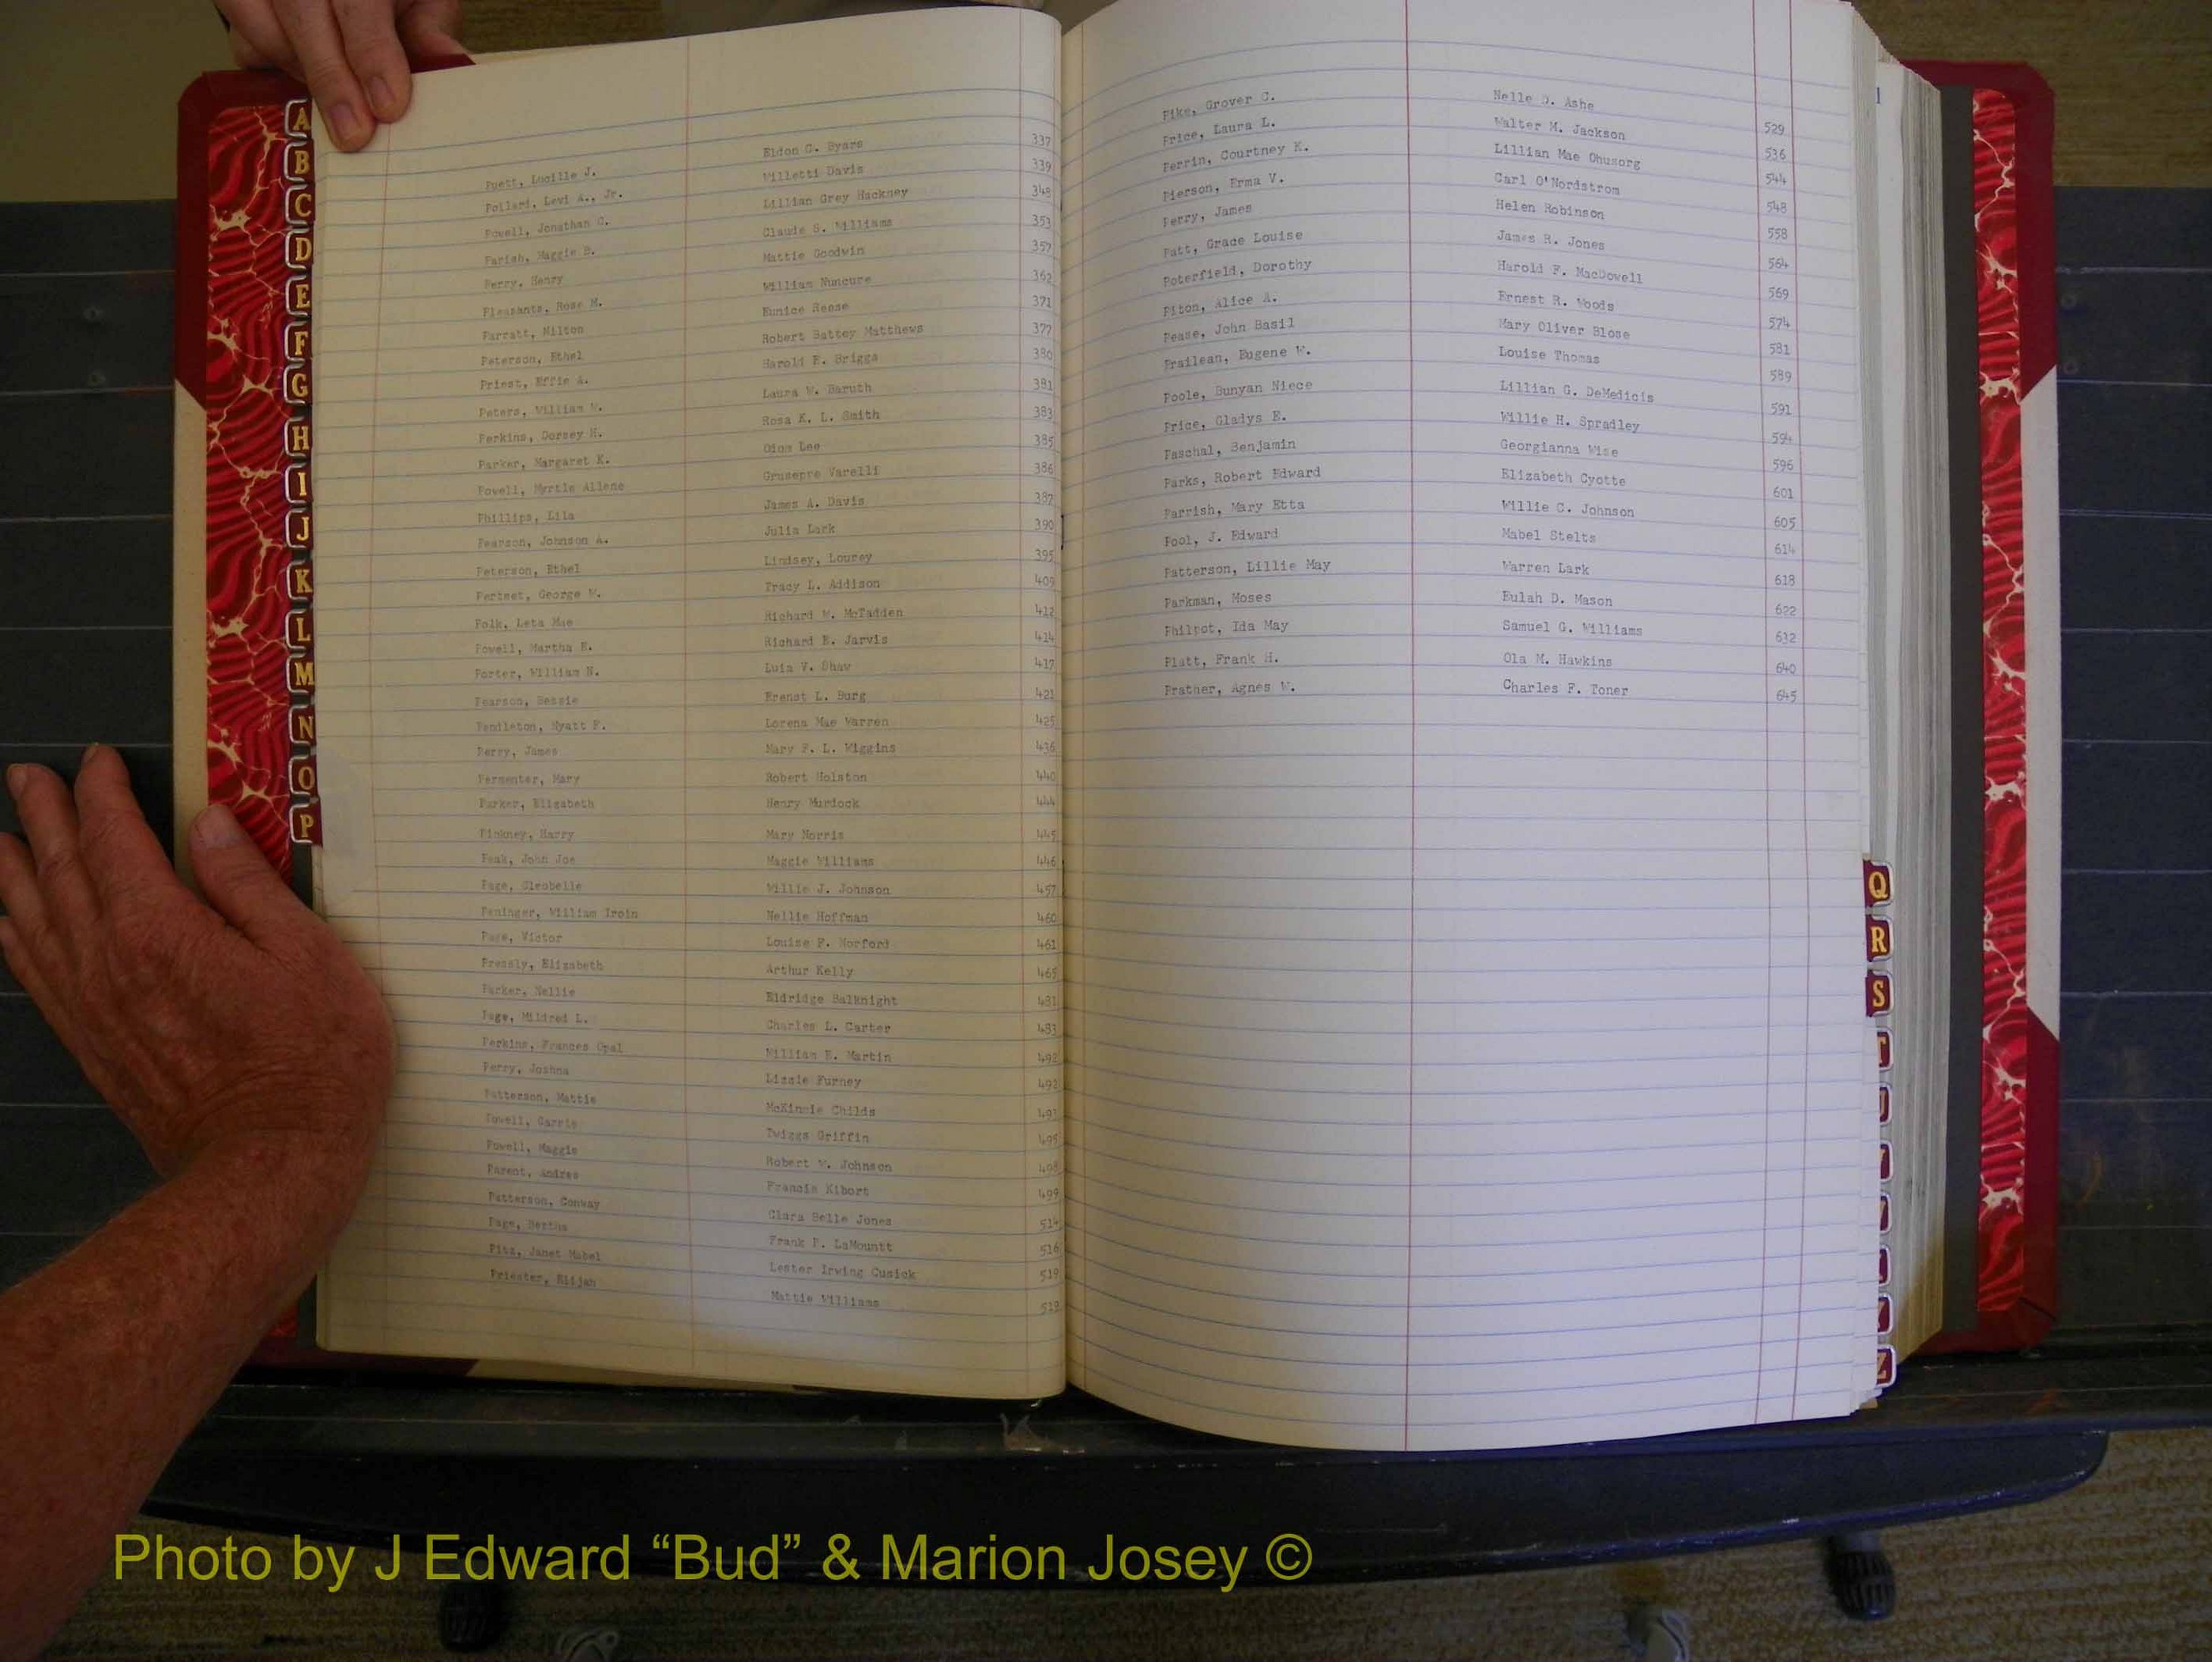 A
B
C
D
E
F
G
H
I
J
K
L
M
N
O
P
Pyett, Lucille J. Eldon G. Byars 337
Pollard, Levi A., Jr. Willetti Davis 339
Powell, Jonathan C. Lillian Grey Hackney 348
Parish, Maggie B. Claude S. Williams 353
Perry, Henry Mattie Goodwin 357
Pleasants, Rose M. William Nuncure 362
Parratt, Milton Eunice Reese 371
Peterson, Ethel Robert Battey Matthews 377
Priest, Effie A. Harold E. Briggs 380
Peters, William W. Laura W. Baruth 381
Perkins, Dorsey H. Rosa K. L. Smith 383
Parker, Margaret K. Lee 385
Powell, Myrtle Allene Varelli 386
Phillips, Lila James A. Davis 387
Pearson, Johnson A. Julia Lark 390
Peterson, Ethel Lindsey, Lourey 395
George W. Tracy L. Addison 409
Polk, Leta Mae Richard W. McTadden 412
Powell, Martha E. Richard E. Jarvis 414
Porter, William N. Luia V. Shaw 417
Pearson, Bessie Erenst L. Burg 421
Pendleton, Hyatt F. Lorena Mae Warren 425
Perry, James Mary F. L. Wiggins 436
Permenter, Mary Robert Holston 440
Parker, Elizabeth Henry Murdock 444
Pinkney, Harry Mary Norris 445
Peak, John Joe Maggie Williams 446
Page, Cleobelle Willie J. Johnson 457
Peninger, William Iroin Nellie Hoffman 460
Pace, Victor Louise F. Norford 461
Pressly, Elizabeth Arthur Kelly 465
Parker, Nellie Eldridge Balknight 481
Page, Mildred L. Charles L. Carter 483
Perkins, Frances Opal William E. Martin 492
Perry, Joshua Lizzie Furney 492
Patterson, Mattie McKinzie Childs 493
Powell, Carrie Twiggs Griffin 495
Powell, Maggie Robert W. Johnson 498
Parent, Andres Francis Kibort 499
Patterson, Conway Clara Belle Jones 514
Page, Bertha Frank P. LaMountt 516
Pitz, Janet Mabel Lester Irwing Cusick 519
Priester, Elijah Mattie Williams 519
Pike, Grover C. Nelle D. Ashe 529
Price, Laura L. Walter M. Jackson 536
Perrin, Courtney K. Lillian Mae Ohusorg 544
Pierson, Erma V. Carl O'Nordstrom 548
Perry, James Helen Robinson 558
Patt, Grace Louise James R. Jones 564
Poterfield, Dorothy Harold F. MacDowell 569
Piton, Alice A. Ernest R. Woods 574
Pease, John Basil Mary Oliver Blose 581
Prailean, Eugene W. Louise Thomas 589
Poole, Bunyan Niece Lillian G. DeMedicis 591
Price, Gladys E. Willie H. Spradley 594
Paschal, Benjamin Georgianna Wise 596
Parks, Robert Edward Elizabeth Cyotte 601
Parrish, Mary Etta Willie C. Johnson 605
Pool, J. Edward Mabel Stelts 614
Patterson, Lillie May Warren Lark 618
Parkman, Moses Eulah D. Mason 622
Philpot, Ida May Samuel G. Williams 632
Platt, Frank H. Ola M. Hawkins 640
Prather, Agnes W. Charles F. Toner 645
Q
R
S
T
Z
Photo by J Edward “Bud” & Marion Josey ©